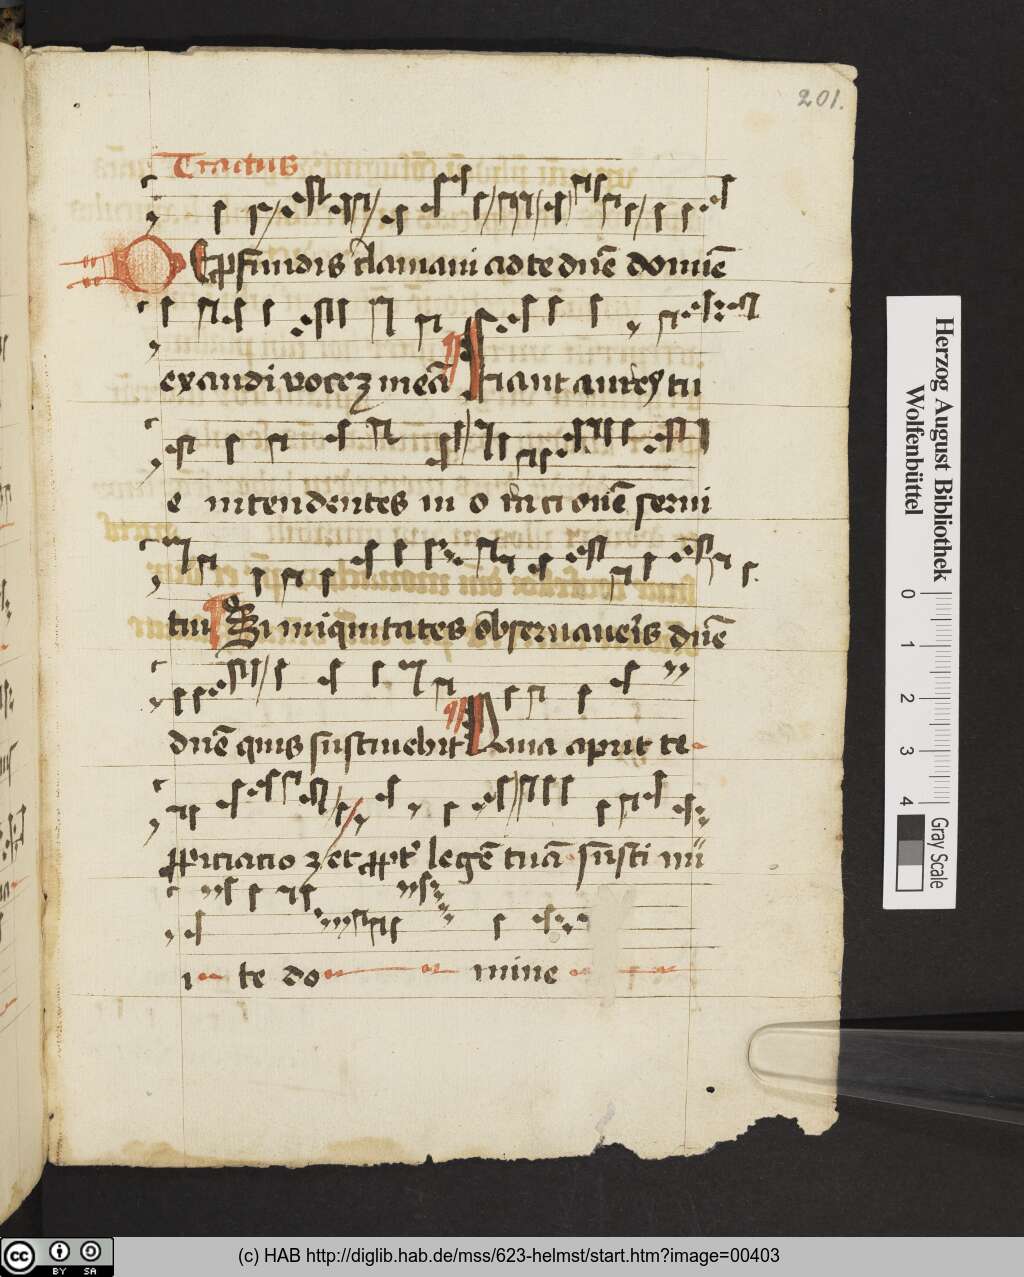 201.
Tractus
DE p̱fundis clamaui ad te dn̄e domīe
exaudi vocez meā Fiant aures tu
e intendentes in orationē serui
tui Si iniq̄uitates obserauer̄is dn̄e
dn̄e quis sustinebit Quia aput te
ppiciacio z et ppt̉ legē tuā sustinui
te do mine
Herzog August Bibliothek
Wolfenbüttel
0 1 2 3 4
Gray Scale
cc BY SA
(c) HAB http://diglib.hab.de/mss/623-helmst/start.htm?image=00403